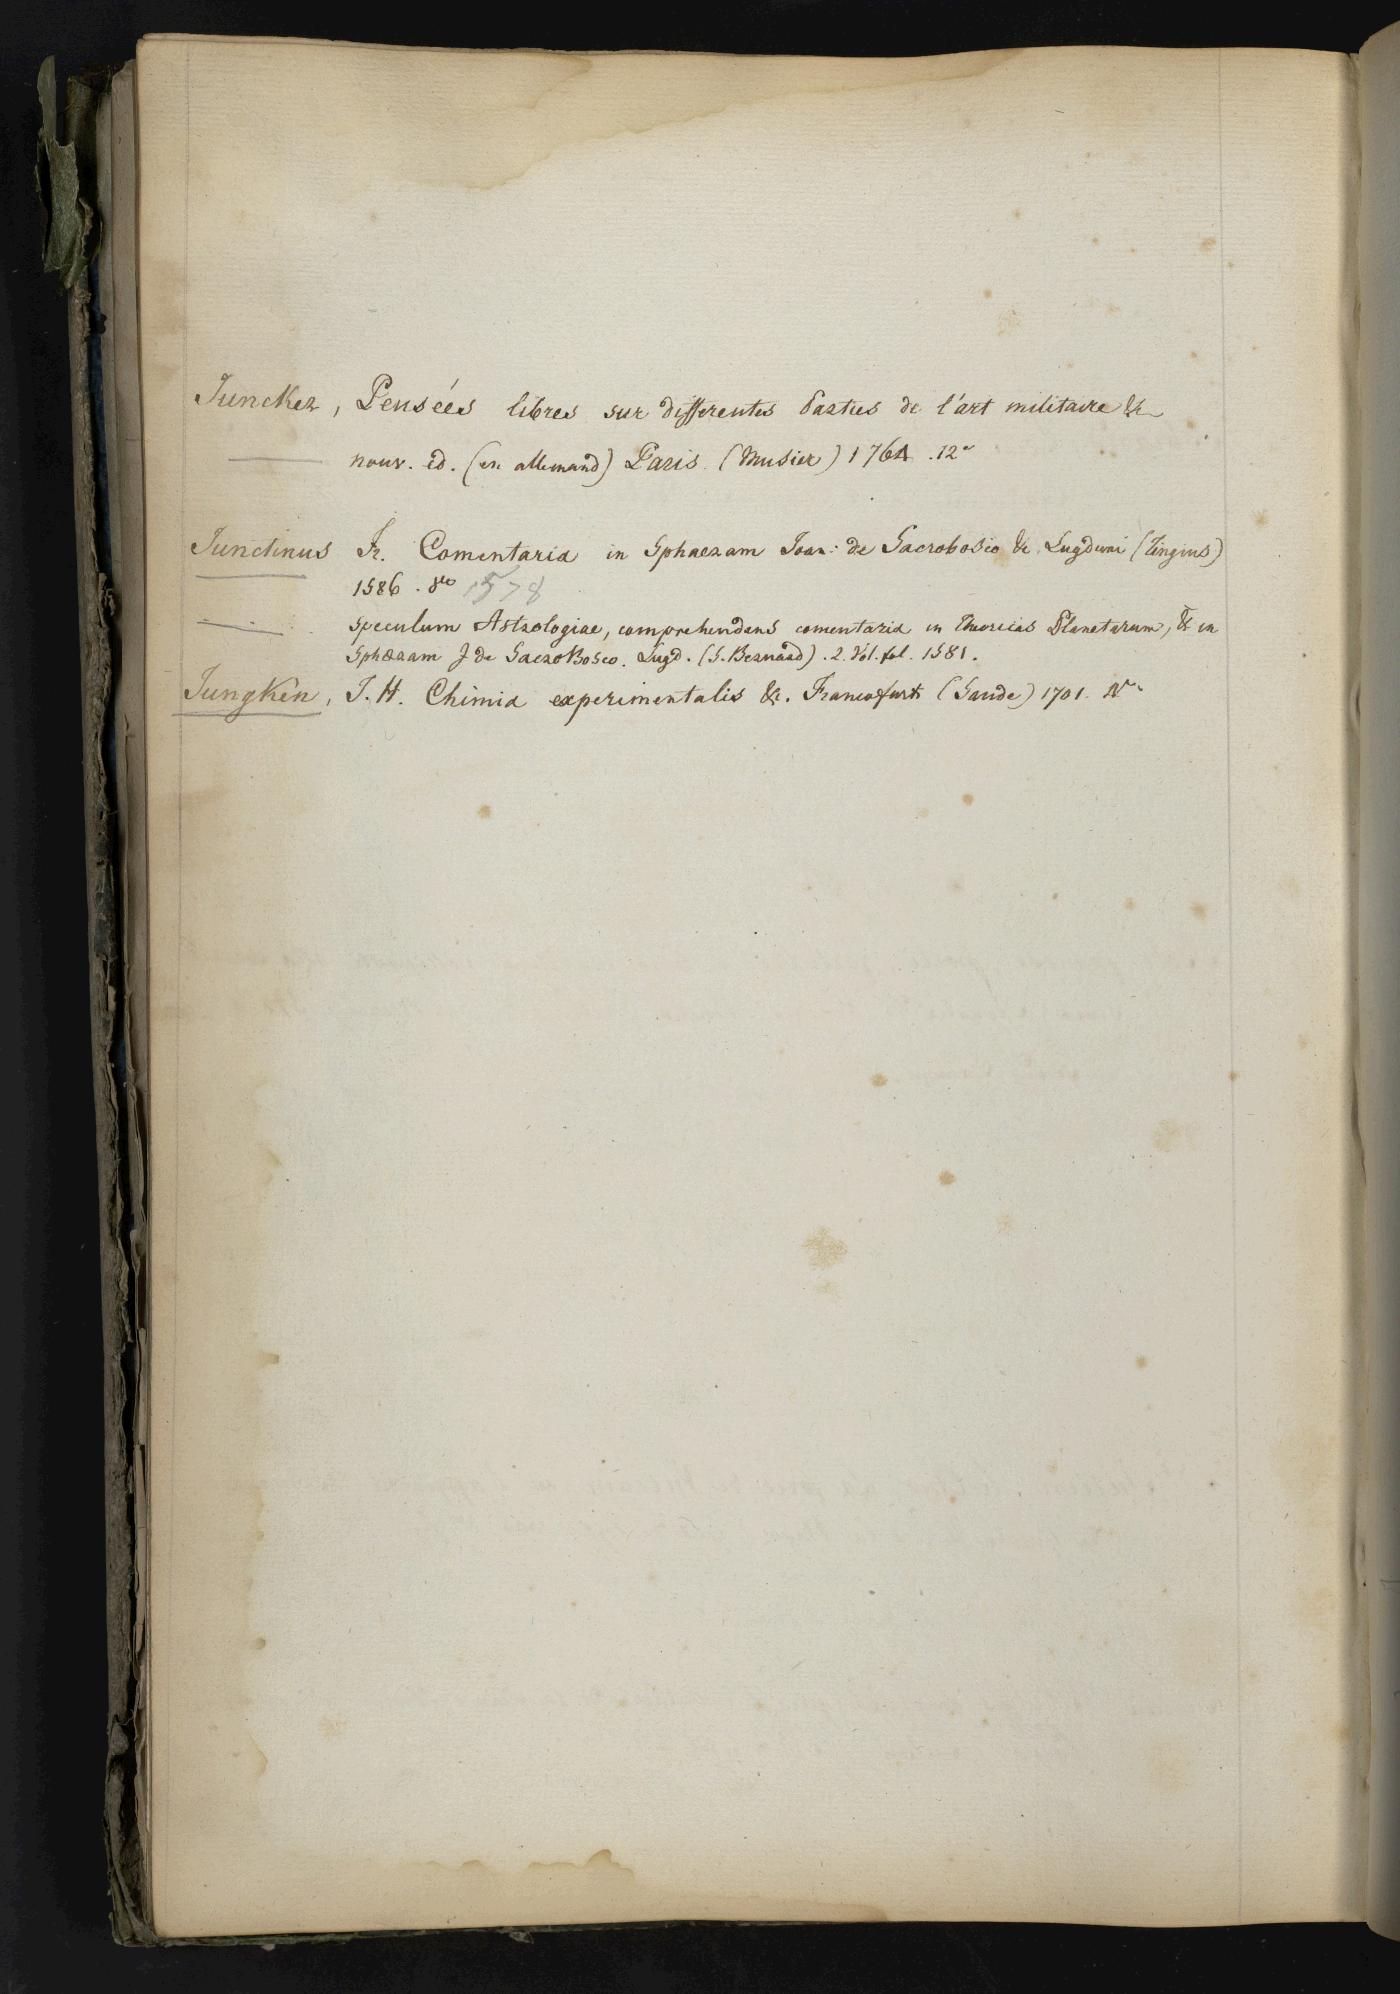 Juncker, Pensées libres sur differentes Parties de l'art militaire &c
nouv. ed. (en allemand) Paris (Musier) 1764. 12°
Junctinus Fr. Comentaria in Sphaeram Joan: de Sacrobosco &c Lugduni (Tingius)
1586. 8vo 1578
Speculum Astrologiae, comprehendens comentaria in Theoricas Planetarum, & in
Sphæram J de Sacro Bosco. Lugd. (S. Beraud). 2. Vol. fol. 1581.
Jungken, J. H. Chimia experimentalis &c. Francofurti (Sande) 1701.